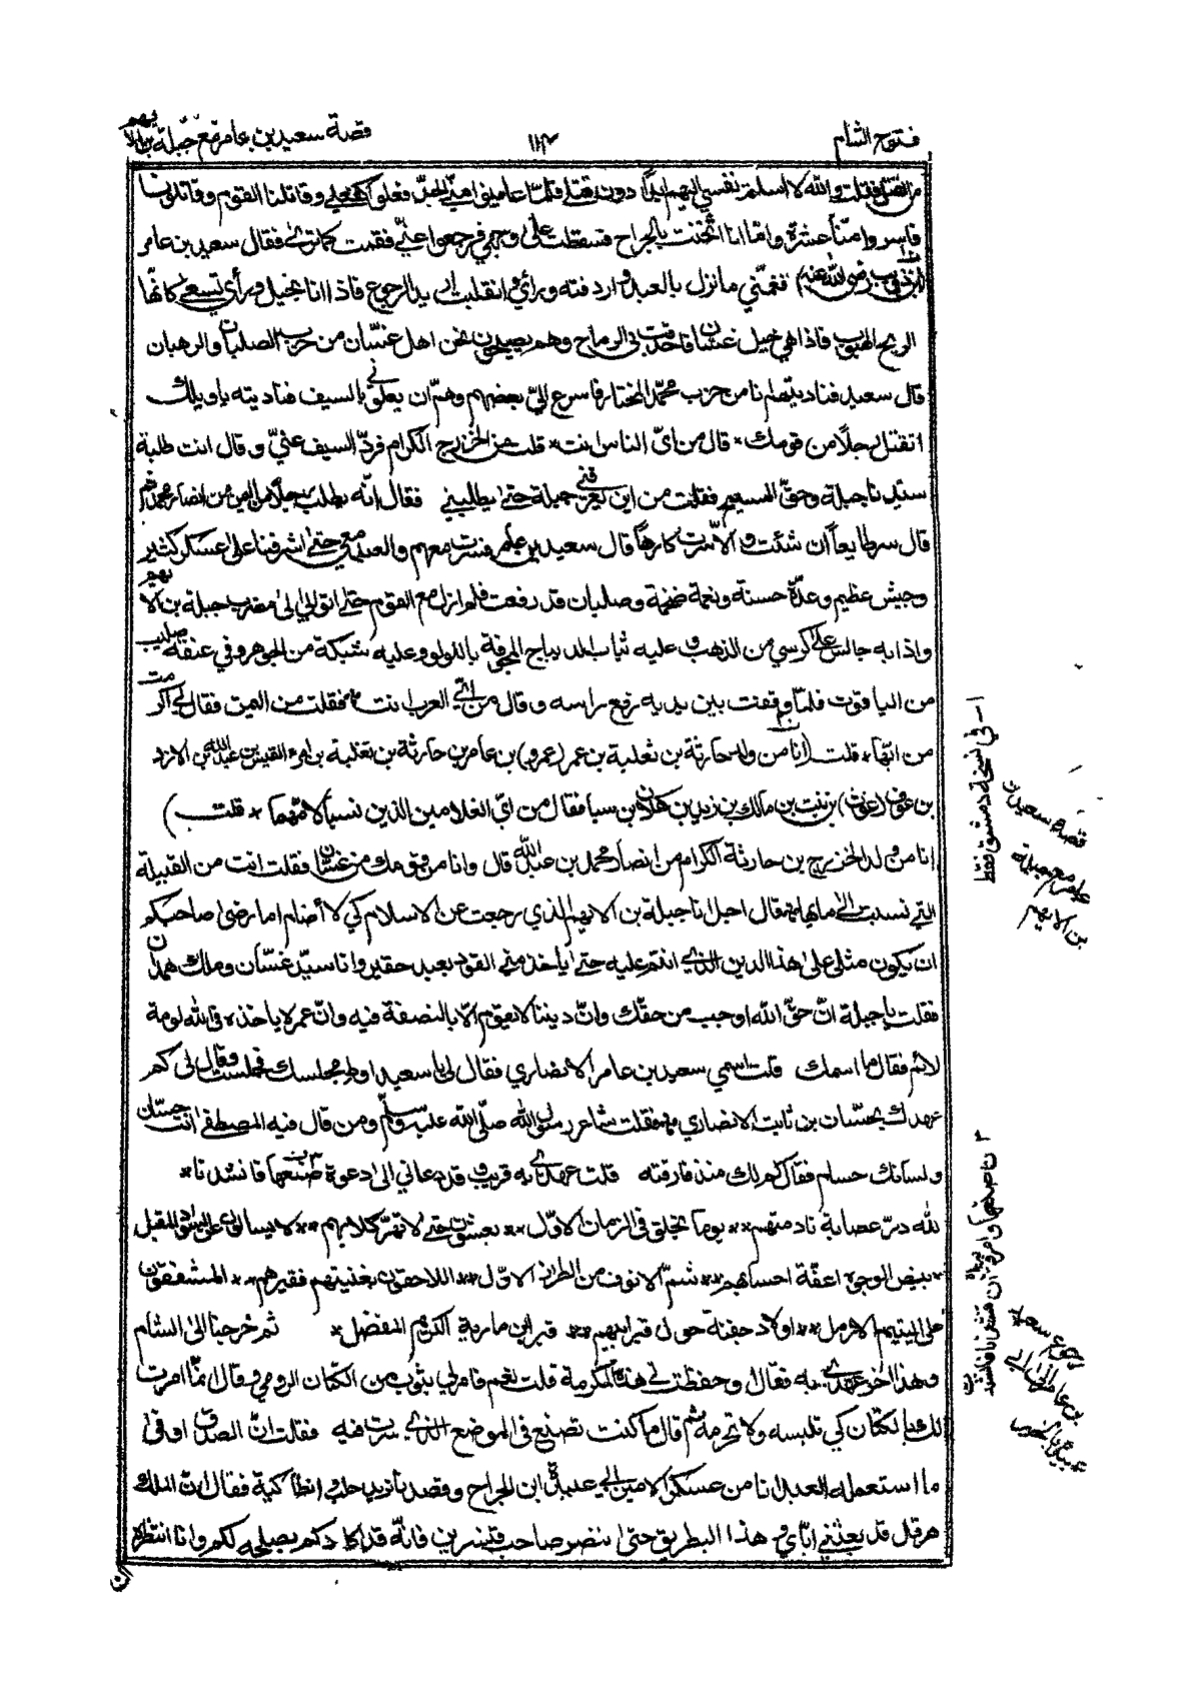 فتوح الشام
١١٣
قصة سعيد بن عامر مع جبلة بن الايهم
من القتل فقلت والله لا اسلم نفسي اليهم ابدًا دون قتلي فلمّا عاينوا مني الجدّ فعلوا كفعلي وقاتلنا القوم وقاتلونا
فاسر وامنّا عشرة واما انا اثخنت بالجراح فسقطت على وجهي فرجعوا عنّي فقمت كما ترى فقال سعيد بن عامر
رضي الله عنه فغمّني ما نزل بالعبد واردفته ورائي وانقلبت اريد الرجوع فاذا انا بخيل ورأي تسعى كانّها
الريح الهبوب فاذا هي خيل غسّان فاحدقت بي الرماح وهم يصيحون نحن اهل غسّان من حزب الصلبان والرهبان
قال سعيد فناديتهم انا من حزب محمّد المختار فاسرع اليّ بعضهم وهمّ ان يعلوني بالسيف فناديته يا ويلك
اتقتل رجلًا من قومك * قال من ايّ الناس انت * قلت من الخزرج الكرام فردّ السيف عنّي وقال انت طلبة
سيّدنا جبلة وحقّ المسيح فقلت من اين يعرفني جبلة حتى يطلبني فقال انّه يطلب رجلًا من اليمن من انصار محمد
قال سر طايعاً ان شئت والّا سرت كارهاً قال سعيد بن عامر فسرت معهم والعبد معي حتى اشرفنا على عسكر كثير
وجيش عظيم وعدّة حسنة ونعمة ضخمة وصلبان قد رفعت فلم ازل مع القوم حتى اتوا بي الى مضرب جبلة بن الايهم
واذا به جالس على كرسي من الذهب وعليه ثياب الديباج باللولو وعليه شبكة من الجوهر وفي عنقه صليب
من الياقوت فلمّا وقفت بين يديه رفع راسه وقال من ايّ العرب انت فقلت من اليمن فقال لي اكرمت
من ايّها * قلت (انا من ولد حارثة بن ثعلبة بن عمر (عمرو) بن عامر بن حارثة بن ثعلبة بن امرء القيس بن عبد الله بن الازد
بن عوف (غوث) بن نبت بن مالك بن زيد بن كهلان بن سبا فقال من ايّ الغلامين الذين نسبا لامّهما * قلت)
انا من ولد الخزرج بن حارثة الكرام من انصار محمد بن عبد الله قال وانا من قومك من غسّان فقلت انت من القبيلة
التي نسبت الى مائها فقال اجل انا جبلة بن الايهم الذي رجعت عن الاسلام كي لا أضام اما رضى صاحبكم
ان يكون مثلي على هذا الدين الذي انتم عليه حتى ياخذ مني القود بعبد حقير وانا سيّد غسّان وملك همدان
فقلت يا جبلة انّ حقّ الله اوجب من حقّك وانّ ديننا لا يقوم الّا بالنصفة فيه وانّ عمر لا ياخذه في الله لومة
لائم فقال ما اسمك قلت اسمي سعيد بن عامر الانصاري فقال لي يا سعيد اوط مجلسك فجلست وقال لي كم
عهدك بحسّان بن ثابت الانصاري فقلت شاعر رسول الله صلّى الله عليه وسلم ومن قال فيه المصطفى انت حسّان
ولسانك حسام فقال كم لك منذ فارقته قلت عهدي به قريب وقد دعاني الى دعوة صنعها فانشدنا *
لله درّ عصابة نادمتهم ** يوما بجلق في الزمان الاوّل ** يغشون حتى لا تهرّ كلابهم ** لا يسالون عن السواد المقبل
* بيض الوجوه اعفّة احسابهم ** شمّ الانوف من الطراز الاوّل ** اللاحقون بغنيتهم فقيرهم ** المشفقون
على اليتيم الارمل ** اولاد جفنة حول قبر ابيهم ** قبر ابن مارية الكريم المفضل * ثم خرجنا الى الشام
وهذا اخر عهدي به فقال وحفظت لي هذه المكرمة قلت نعم فامر لي بثوب من الكتان الرومي وقال انّما امرت
لك بالكتان كي تلبسه ولا تحرمه ثم قال ما كنت تصنع في الموضع الذي سرت فيه فقلت انّ الصدق اوفى
ما استعمله العبد انا من عسكر الامير ابي عبيدة ابن الجراح وقصدنا نريد حلب وانطاكية فقال انّ الملك
هرقل قد بعثني ايّاي وهذا البطريق حتى ننصر صاحب قنسرين فانّه قد كادكم بصلحه لكم وانا انتظره
ا۔ في نسخة دمشق فقط
قصة سعيد بن عامر مع جبلة بن الايهم